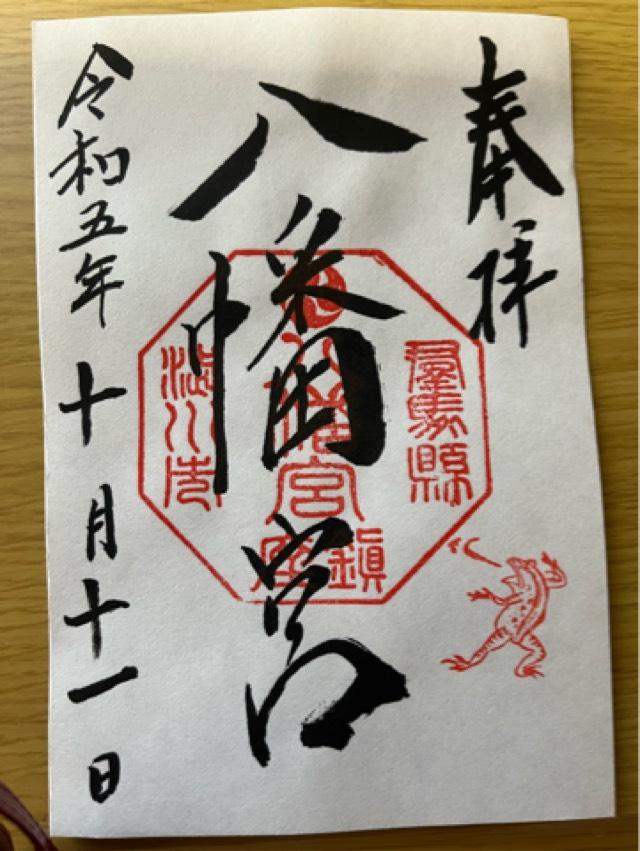 奉拝
群馬縣
八幡宮
八幡宮
鎮座
渋川市
令和五年十月十一日